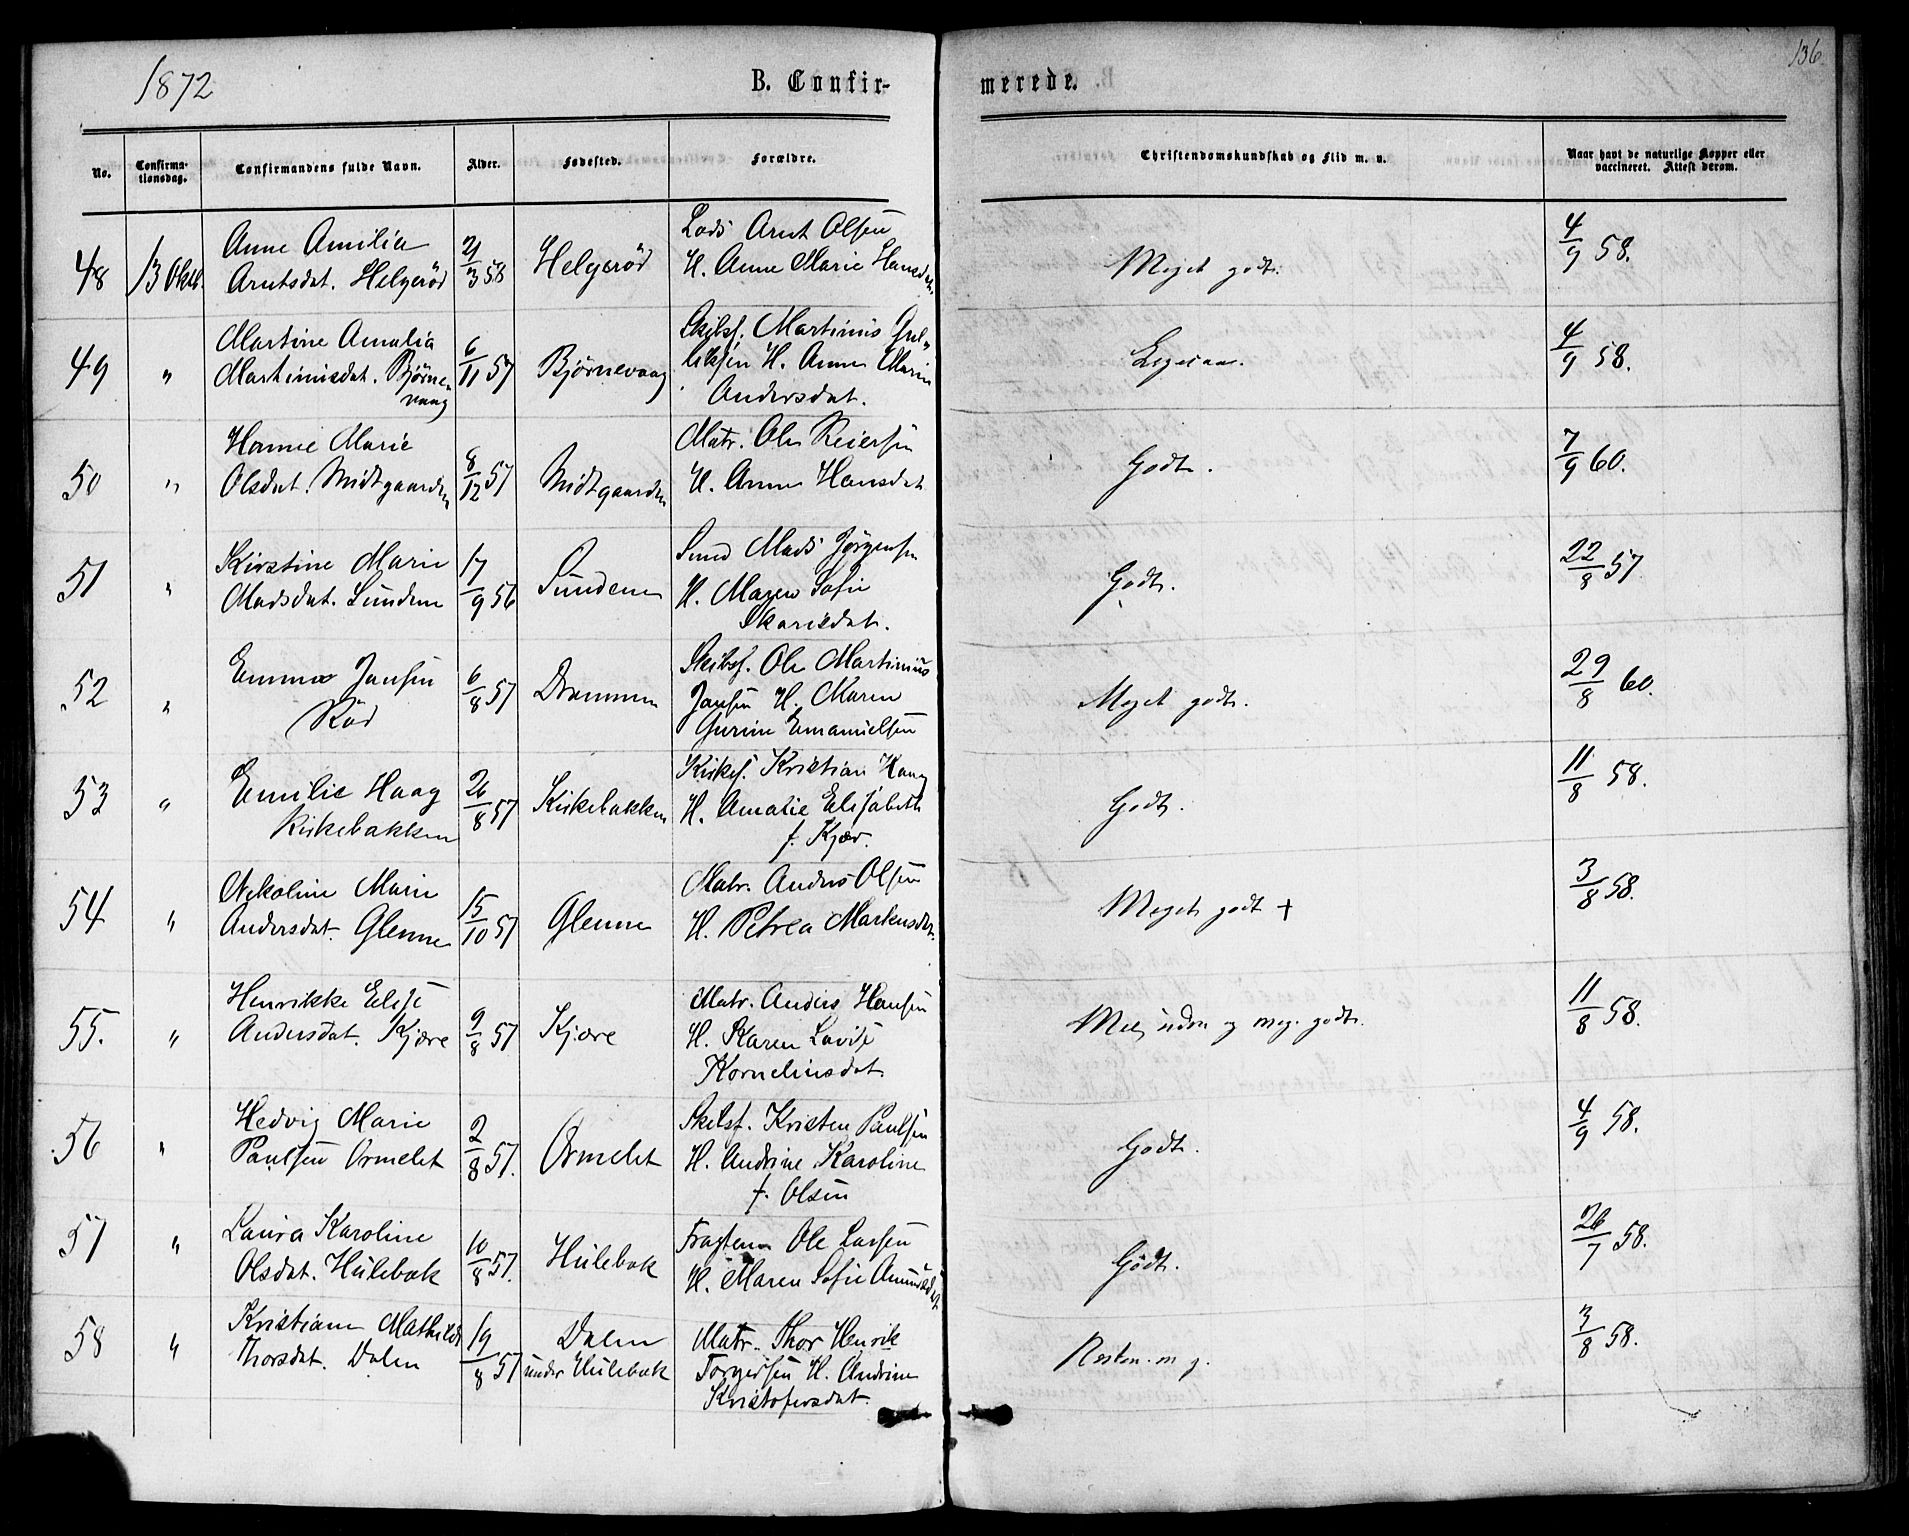 1872
B. Confir-
merede.
136
No.
Confirma-
tionsdag.
Confirmandens fulde Navn.
Alder.
Fødested.
Forældre.
Christendomskundskab og Flid m. v.
Naar havt de naturlige Kopper eller
vaccineret. Attest derom.
48 13 Oktb. Anne Amilia
Arntsdat. Helgerød
21/3 58
Helgerød
Lods Arnt Olsen
H. Anne Marie Hansdat.
Meget godt.
4/9 58.
49 " Martine Amalia
Martinusdat. Bjørne-
vaag
6/11 57
Bjørnevaag
Skibsf. Martinus Gul-
liksen H. Anne Marie
Andersdat.
Ligesaa.
4/9 58.
50 " Hanne Marie
Olsdat. Midtgaarden
8/12 57
Midtgaarden
Matr. Ole Reiersen
H. Anne Hansdat
Godt.
7/9 60.
51 " Kirstine Marie
Madsdat. Sundene
17/9 56
Sundene
Mads Jørgensen
H. Maren Sofie
Godt.
22/8 57.
52 " Emma Jansen
Rød
6/8 57
Drammen
Skibsf. Ole Martinius
Jansen H. Maren
Gurine Emanuelsen
Meget godt.
29/8 60.
53 " Emilie Haag
Kirkebakken
26/8 57
Kirkebakken
Kirkes. Kristian Haag
H. Amalie Elisabeth
f. Kjær.
Godt.
11/8 58.
54 " Nikoline Marie
Andersdat. Glenne
15/10 57
Glenne
Matr. Anders Olsen
H. Petrea Martensdat.
Meget godt +
3/8 58.
55. " Henrikke Elise
Andersdat. Kjære
9/8 57
Kjære
Matr. Anders Hansen
H. Karen Lovise
Korneliusdat
og meg. godt.
11/8 58.
56 " Hedvig Marie
Paulsen Ormelet
2/8 57.
Ormelet
Skibsf. Kristen Paulsen
H. Andrine Karoline
f. Olsen
Godt.
4/9 58.
57 " Laura Karoline
Olsdat. Hulebak
10/8 57.
Hulebak
Ole Larsen
H. Maren Sofie Amundsdat
Godt.
26/7 58.
58 " Kristiane Mathilde
Thorsdat. Dalen
19/8 57
Dalen
under Hulebak
Matr. Thor Henrik
Torgersen H. Andrine
Kristofersdat.
Næsten m. g.
3/8 58.